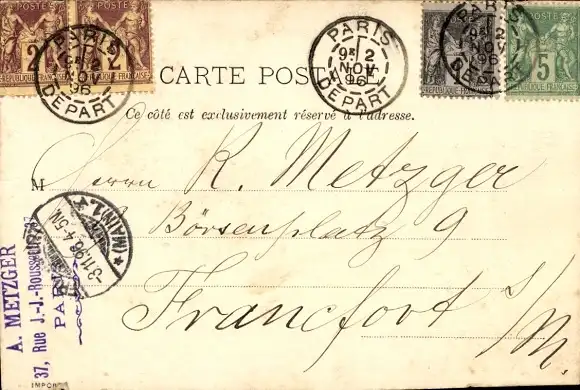 POSTES POSTES
2 2
RÉPUBLIQUE FRANÇAISE
PARIS
2
NOV
96
DEPART
PARIS
9E 2
NOV
96
DEPART
1
RÉPUBLIQUE FRANÇAISE
PARIS
9E 2
NOV
96
DEPART
POSTES
5
RÉPUBLIQUE FRANÇAISE
CARTE POSTALE
Ce côté est exclusivement réservé à l'adresse.
M Herrn R. Metzger
Börsenplatz 9
Francfort s/M.
(MAIN) 1.
-3.11.96. 4-5N
A. METZGER
37, Rue J.-J.-Rousseau
PARIS